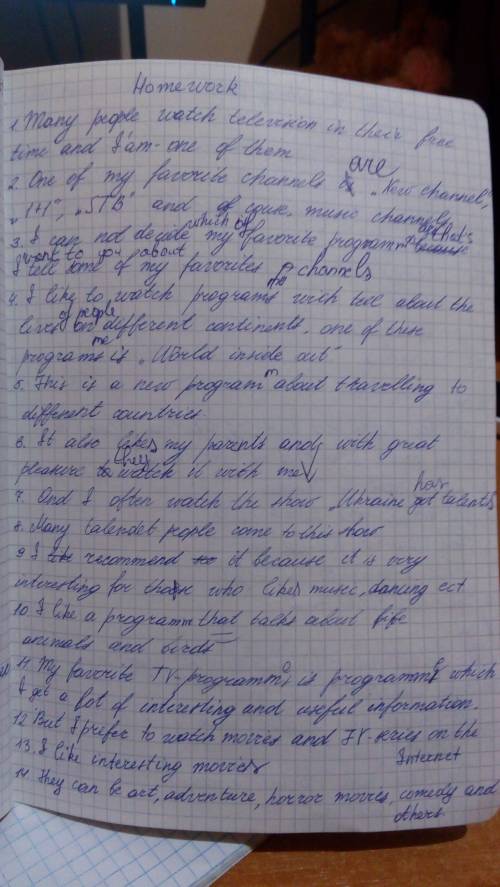 Homework
1. Many people watch television in their free
time and I am one of them
are
2. One of my favorite channels "New channel",
"1+1", "STB" and of course music channels
which of that's
3. I can not decide my favorite programm because
want to you about
I tell some of my favorites channels
4. I like to watch programs with tell about the
of people
lives on different continents. one of these
programs is "World inside out"
5. This is a new program about travelling to
different countries
6. It also likes my parents and with great
they
pleasure watch it with me
has
7. And I often watch the show "Ukraine got talents
8. Many talendet people come to this show
9. I recommend it because it is very
interesting for those who likes music, dancing ect
10. I like a programm that talks about life
animals and birds
11. My favorite TV-programms is programms which
I get a lot of interesting and useful information.
12. But I prefer to watch movies and TV-series on the
Internet
13. I like interesting movies
14. They can be art, adventure, horror movies, comedy and
others